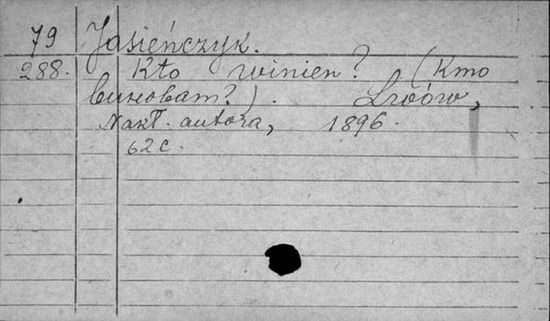 79 Jasieńczyk.
288. Kto winien? (Кто
виноват?). Lwów,
Nakł. autora, 1896.
62 с.